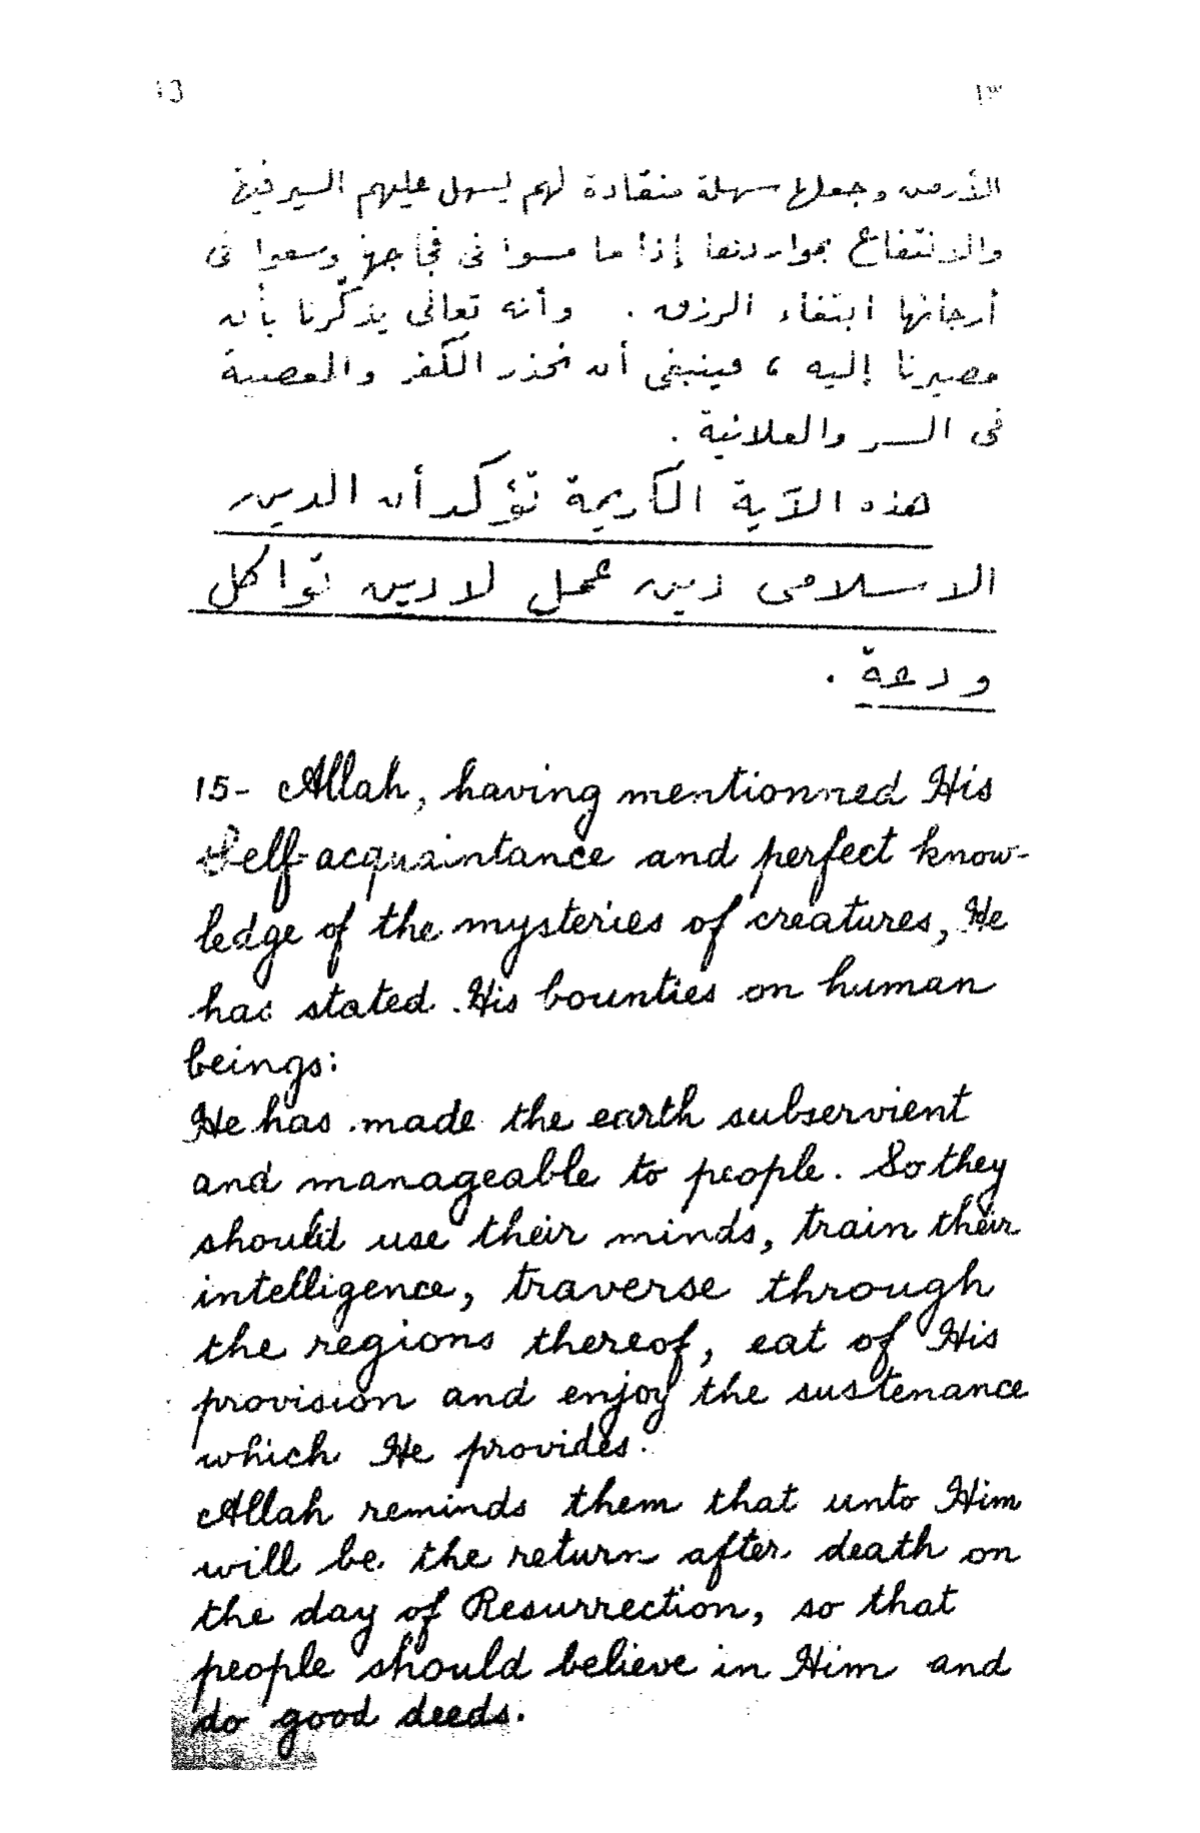 13
١٣
الأرض وجعلها سهلة منقادة لهم ليسهل عليهم السير فيها
والانتفاع بمواردها إذا ما مشوا فى فجاجها وسعوا فى
أرجائها ابتغاء الرزق . وأنه تعالى يذكّرنا بأن
مصيرنا إليه ، فينبغى أن نحذر الكفر والمعصية
فى السر والعلانية .
هذه الآية الكريمة تؤكد أن الدين
الاسلامى دين عمل لا دين تواكل
ودعة .
15- Allah, having mentionned His
Self-acquaintance and perfect know-
ledge of the mysteries of creatures, He
has stated His bounties on human
beings:
He has made the earth subservient
and manageable to people. So they
should use their minds, train their
intelligence, traverse through
the regions thereof, eat of His
provision and enjoy the sustenance
which He provides.
Allah reminds them that unto Him
will be the return after death on
the day of Resurrection, so that
people should believe in Him and
do good deeds.